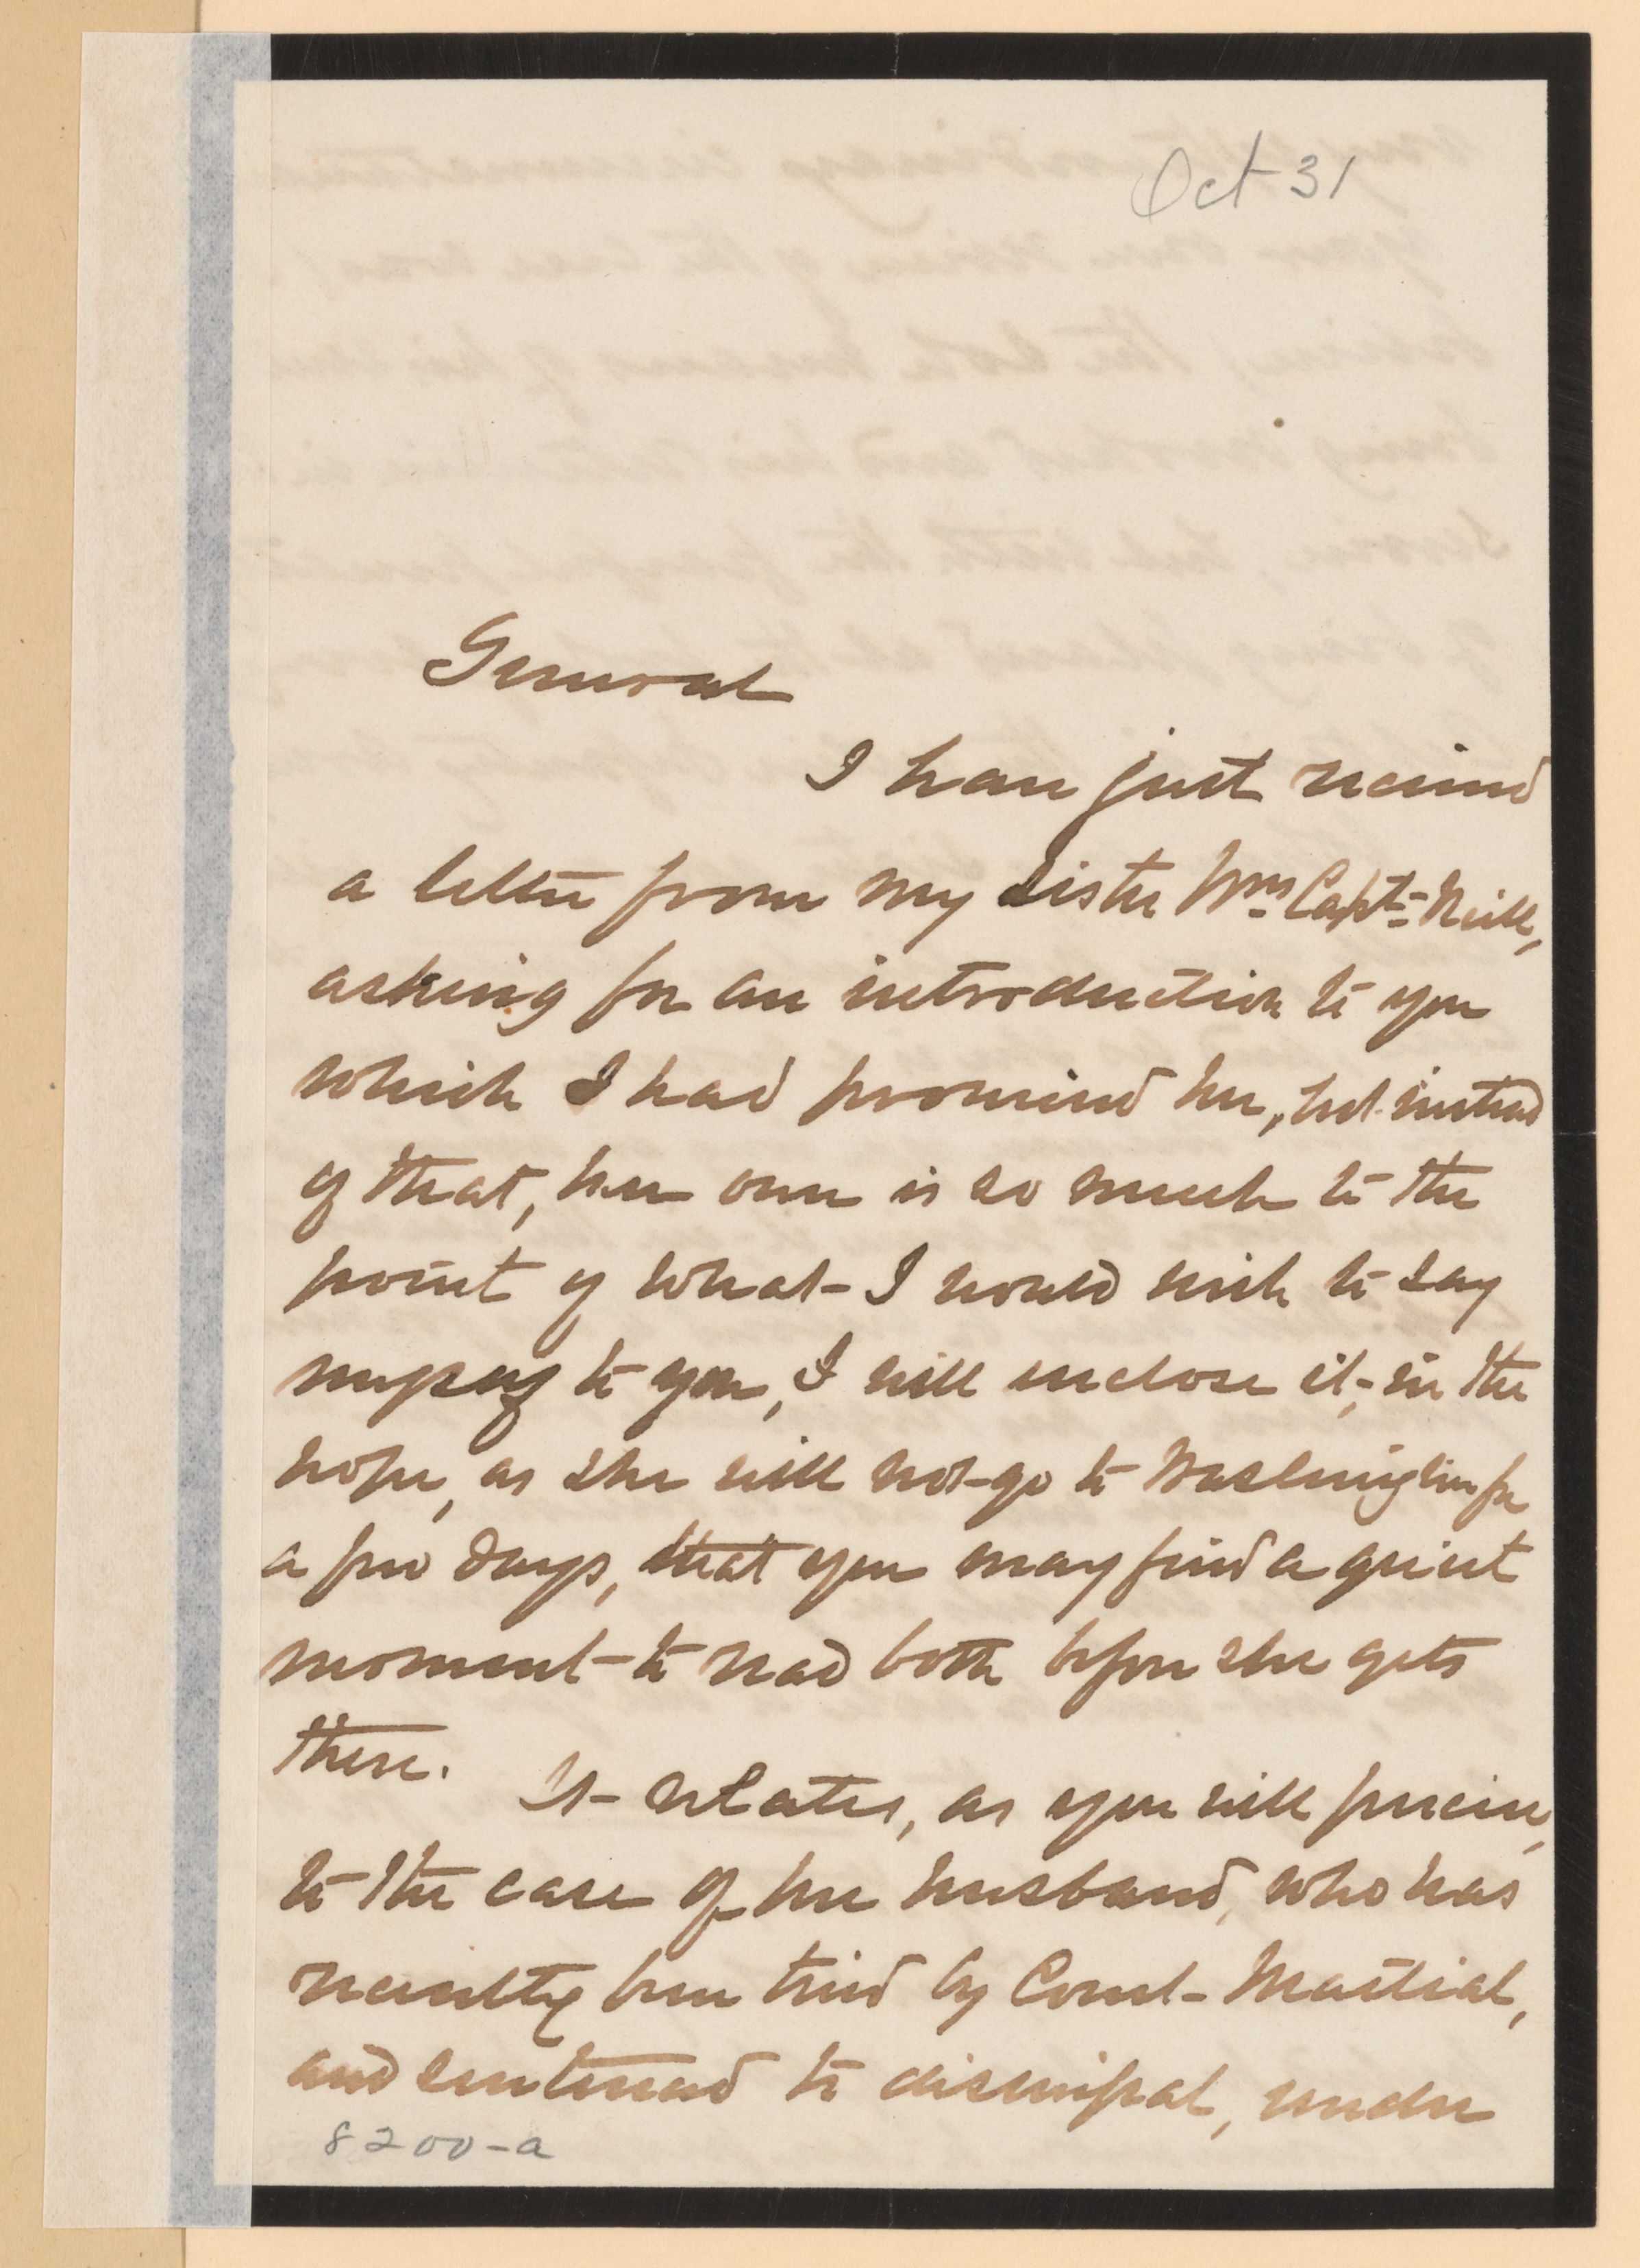 Oct 31
General
I have just received
a letter from my Sister Mrs Capt. Neill,
asking for an introduction to you
which I had promised her, but instead
of that, her own is so much to the
point of what I would wish to say
myself to you, I will enclose it, in the
hope, as she will not go to Washington for
a few days, that you may find a quiet
moment to read both before she gets
there.
It relates, as you will perceive,
to the case of her husband, who has
recently been tried by Court-Martial,
and sentenced to dismissal, under
8200-a